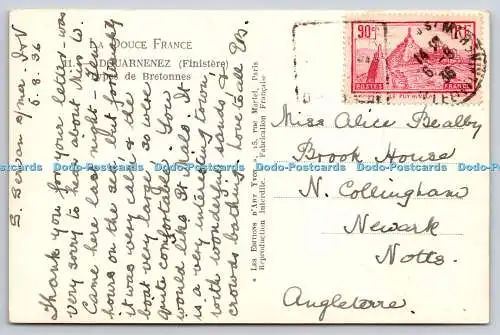 LA DOUCE FRANCE
11. DOUARNENEZ (Finistère)
Types de Bretonnes
6.8.36
Thank you for your letter - was
very sorry to hear about Miss W.
Came here last night - few
hours on the sea, but fortunately
it was very calm & the
boat very large so were
quite comfortable. You
would like St Servan. It
is a very interesting town
with wonderful sands &
crowds bathing. Love to all
★ LES EDITIONS D'ART YVON, 15, rue Martel, Paris
Reproduction Interdite Fabrication Française
90c
RF
POSTES FRANCE
Miss Alice Bealby
Brook House
N. Collingham
Newark
Notts.
Angleterre.
Dodo-Postcards Dodo-Postcards Dodo-Postcards Dodo-Postcards Dodo-Postcards